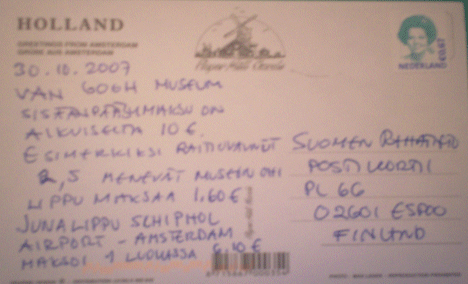 HOLLAND
GREETINGS FROM AMSTERDAM
GRÜSSE AUS AMSTERDAM
30.10.2007
VAN GOGH MUSEUM
SISÄÄNPÄÄSYMAKSU ON
AIKUISELTA 10 €.
ESIMERKIKSI RAITIOVAUNUT
2,5 MENEVÄT MUSEON OHI
LIPPU MAKSAA 1,60 €
JUNALIPPU SCHIPHOL
AIRPORT - AMSTERDAM
MAKSOI 1 LUOKASSA 6,10 €
NEDERLAND
SUOMEN
POSTIKORTTI
PL 66
02601 ESPOO
FINLAND